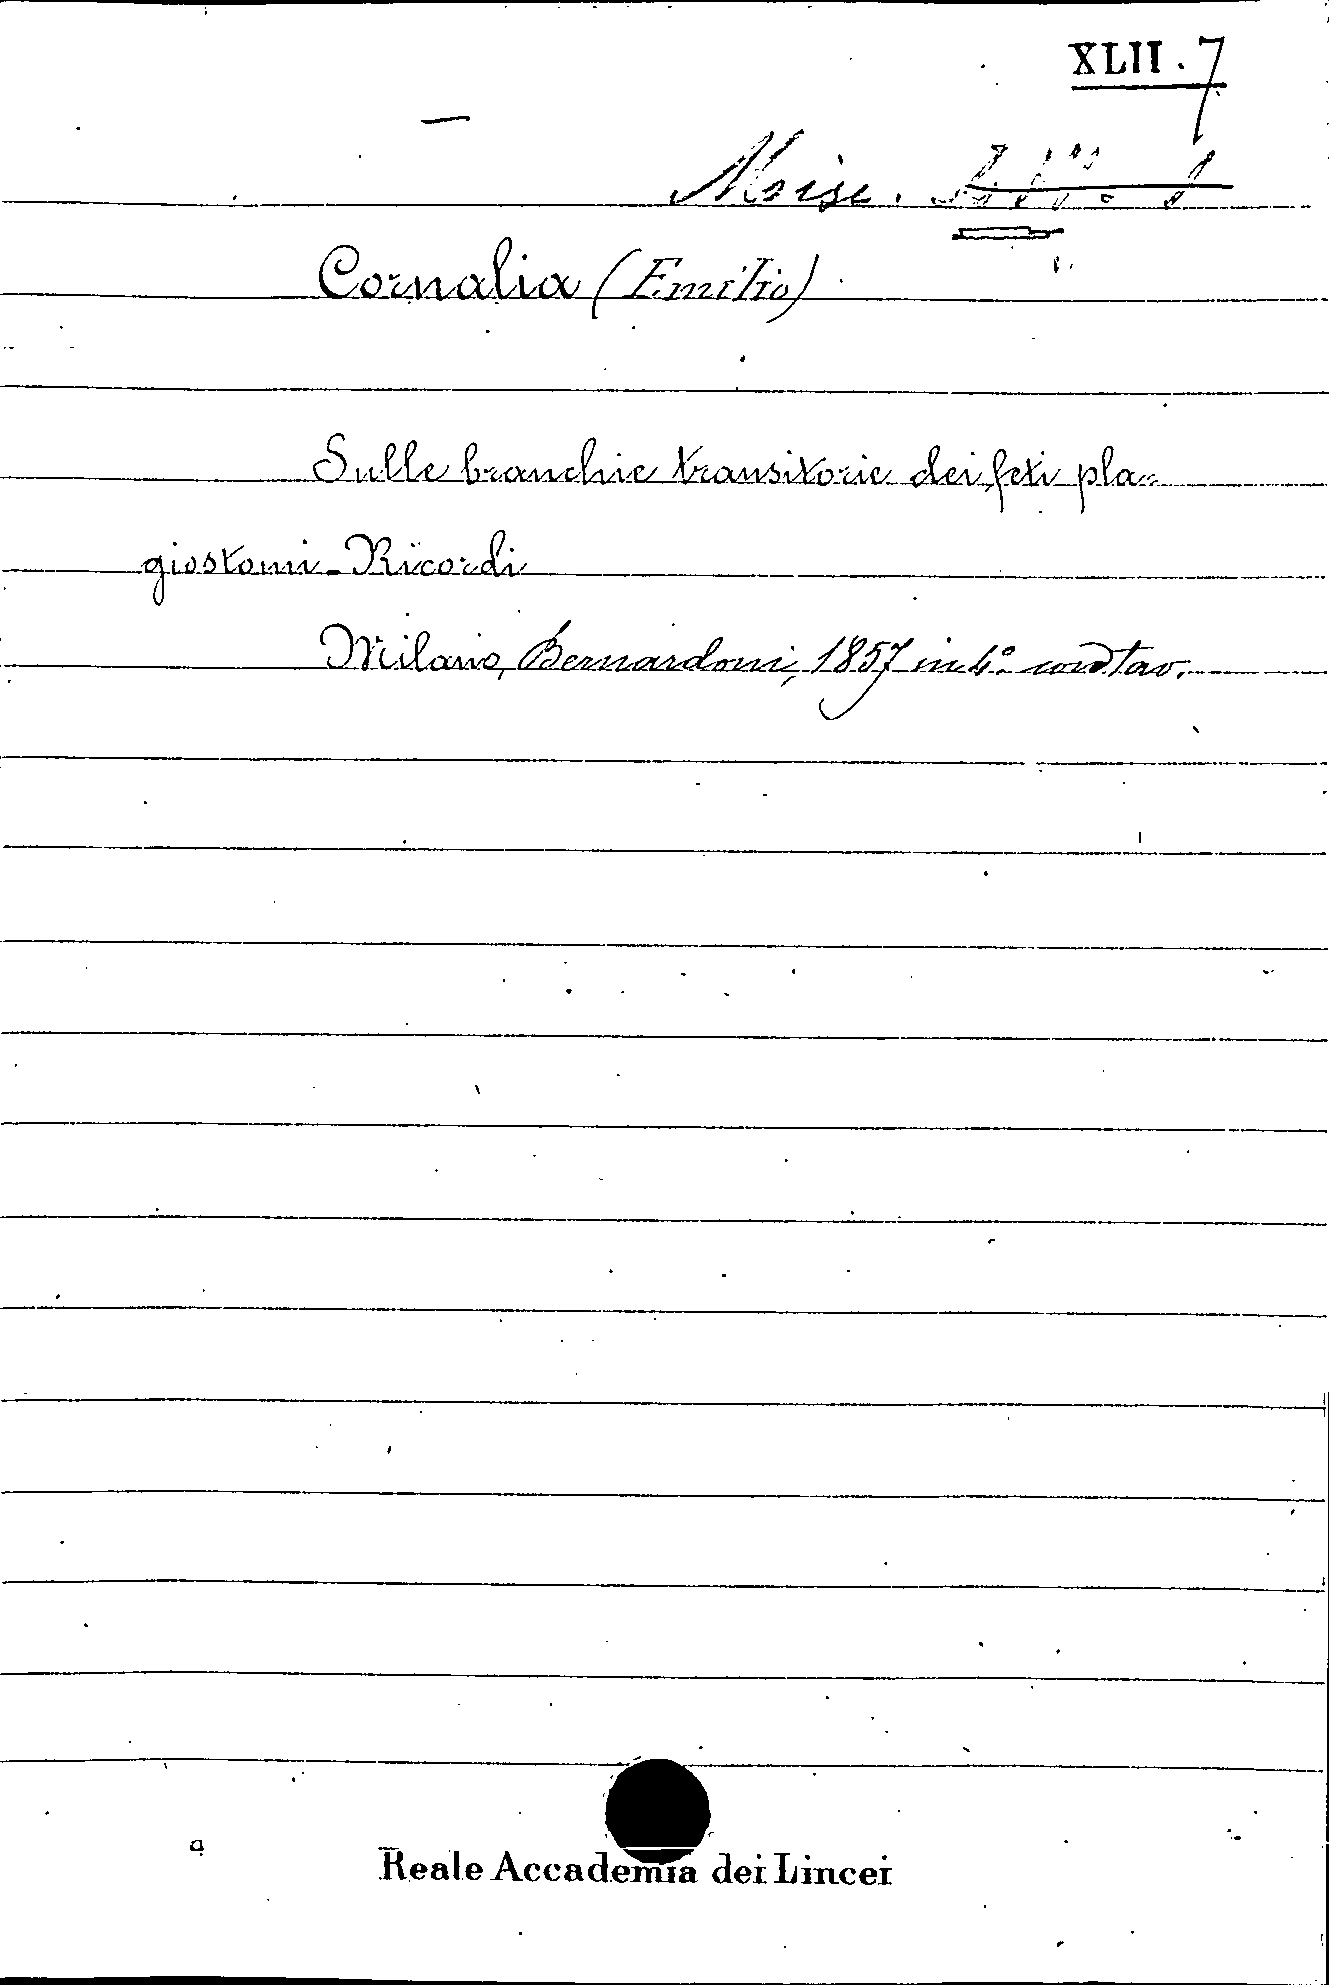 XLII. 7
Moise.
Cornalia (Emilio)
Sulle branchie transitorie dei feti pla-
giostomi - Ricordi
Milano, Bernardoni, 1857 in 4.º con tav.
Reale Accademia dei Lincei